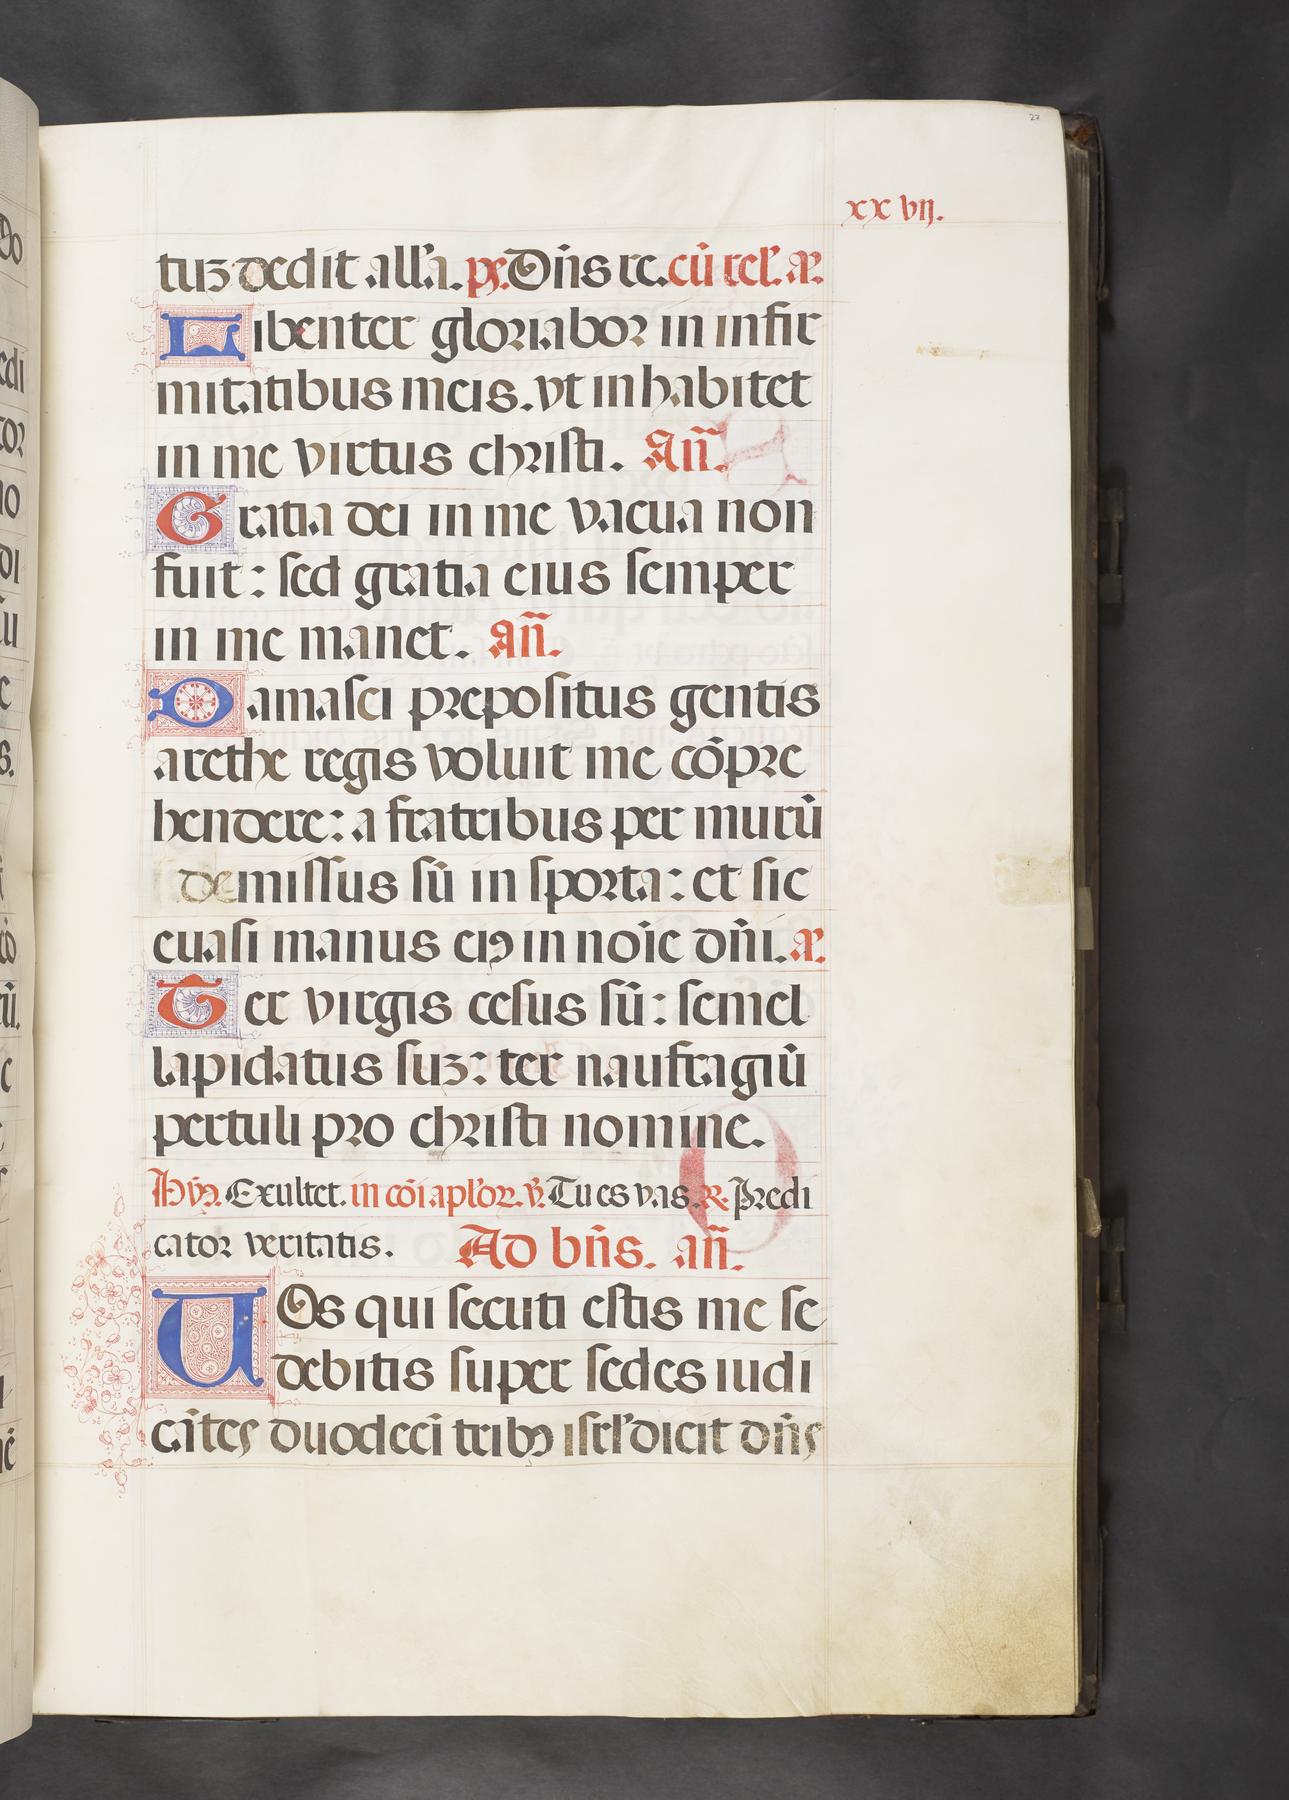 27
xx vij.
tuʒ dedit all'a. ps. Dn̄s rc. cū rel'. añ.
Libenter gloriabor in infir
mitatibus meis. vt inhabitet
in me virtus christi. An̄.
Gratia dei in me vacua non
fuit: sed gratia eius semper
in me manet. an̄.
Damasci prepositus gentis
arethe regis voluit me cōpre
hendere: a fratribus per murū
demissus sū in sporta: et sic
euasi manus eiꝯ in noīe dn̄i. añ.
Ter virgis cesus sū: semel
lapidatus suʒ: ter naufragiū
pertuli pro christi nomine.
Hyn̄. Exultet. in cōi apl'or. v̄. Tu es vas. R. Predi
cator veritatis. Ad bn̄s. an̄.
UOs qui secuti estis me se
debitis super sedes iudi
cātes duodecī tribꝯ isrl' dicit dn̄s